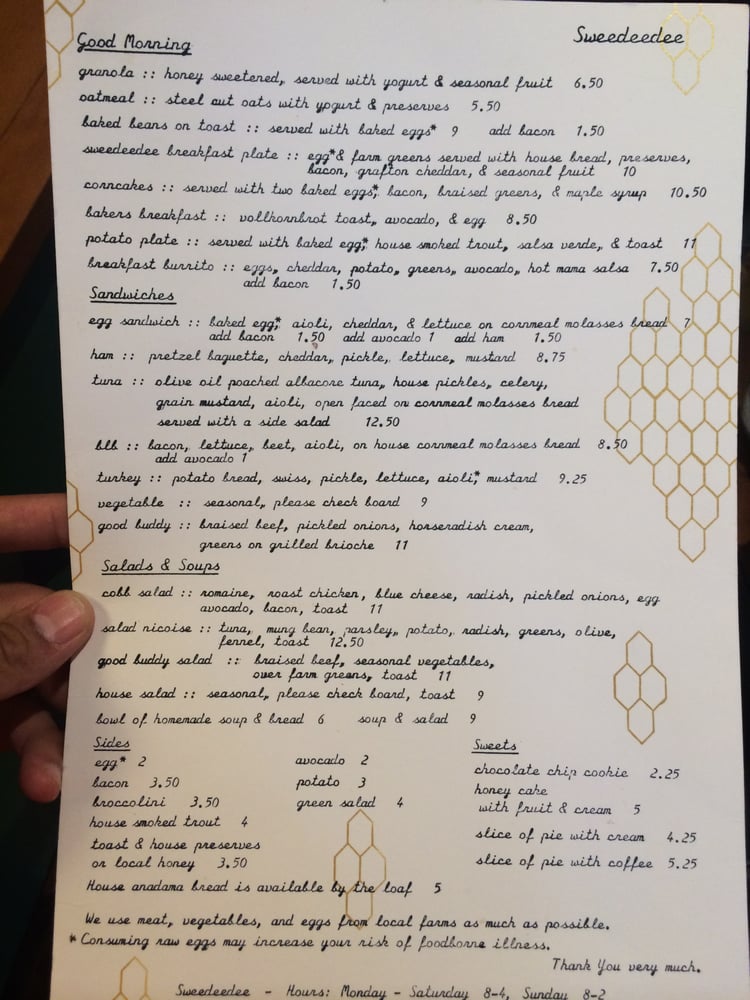 Sweedeedee
Good Morning
granola :: honey sweetened, served with yogurt & seasonal fruit 6.50
oatmeal :: steel cut oats with yogurt & preserves 5.50
baked beans on toast :: served with baked eggs* 9 add bacon 1.50
sweedeedee breakfast plate :: egg*& farm greens served with house bread, preserves,
bacon, grafton cheddar, & seasonal fruit 10
corncakes :: served with two baked eggs*, bacon, braised greens, & maple syrup 10.50
bakers breakfast :: vollkornbrot toast, avocado, & egg 8.50
potato plate :: served with baked egg*, house smoked trout, salsa verde, & toast 11
breakfast burrito :: eggs, cheddar, potato, greens, avocado, hot mama salsa 7.50
add bacon 1.50
Sandwiches
egg sandwich :: baked egg*, aioli, cheddar, & lettuce on cornmeal molasses bread 7
add bacon 1.50 add avocado 1 add ham 1.50
ham :: pretzel baguette, cheddar, pickle, lettuce, mustard 8.75
tuna :: olive oil poached albacore tuna, house pickles, celery,
grain mustard, aioli, open faced on cornmeal molasses bread
served with a side salad 12.50
blb :: bacon, lettuce, beet, aioli, on house cornmeal molasses bread 8.50
add avocado 1
turkey :: potato bread, swiss, pickle, lettuce, aioli*, mustard 9.25
vegetable :: seasonal, please check board 9
good buddy :: braised beef, pickled onions, horseradish cream,
greens on grilled brioche 11
Salads & Soups
cobb salad :: romaine, roast chicken, blue cheese, radish, pickled onions, egg
avocado, bacon, toast 11
salad nicoise :: tuna, mung bean, parsley, potato, radish, greens, olive,
fennel, toast 12.50
good buddy salad :: braised beef, seasonal vegetables,
over farm greens, toast 11
house salad :: seasonal, please check board, toast 9
bowl of homemade soup & bread 6 soup & salad 9
Sides
egg* 2
bacon 3.50
broccolini 3.50
house smoked trout 4
toast & house preserves
or local honey 3.50
avocado 2
potato 3
green salad 4
Sweets
chocolate chip cookie 2.25
honey cake
with fruit & cream 5
slice of pie with cream 4.25
slice of pie with coffee 5.25
House anadama bread is available by the loaf 5
We use meat, vegetables, and eggs from local farms as much as possible.
* Consuming raw eggs may increase your risk of foodborne illness.
Thank You very much.
Sweedeedee - Hours: Monday - Saturday 8-4, Sunday 8-2